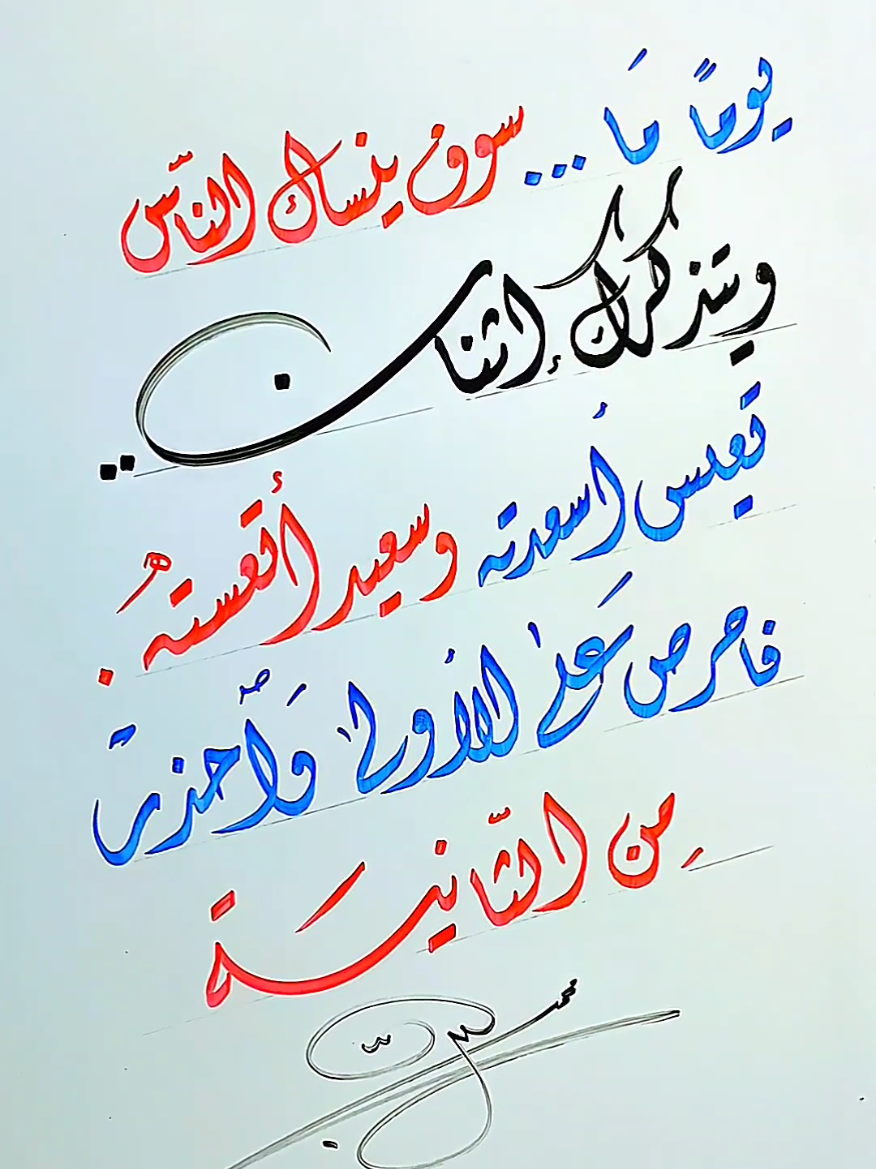 يومًا مَا ... سوف ينساك الناسّ
ويتذكرك إثنان ..
تعيس أسعدته وسعيد أتعستهُ .
فاحرص عَلى الأولى وَٱحذر
مِن الثّانيَة